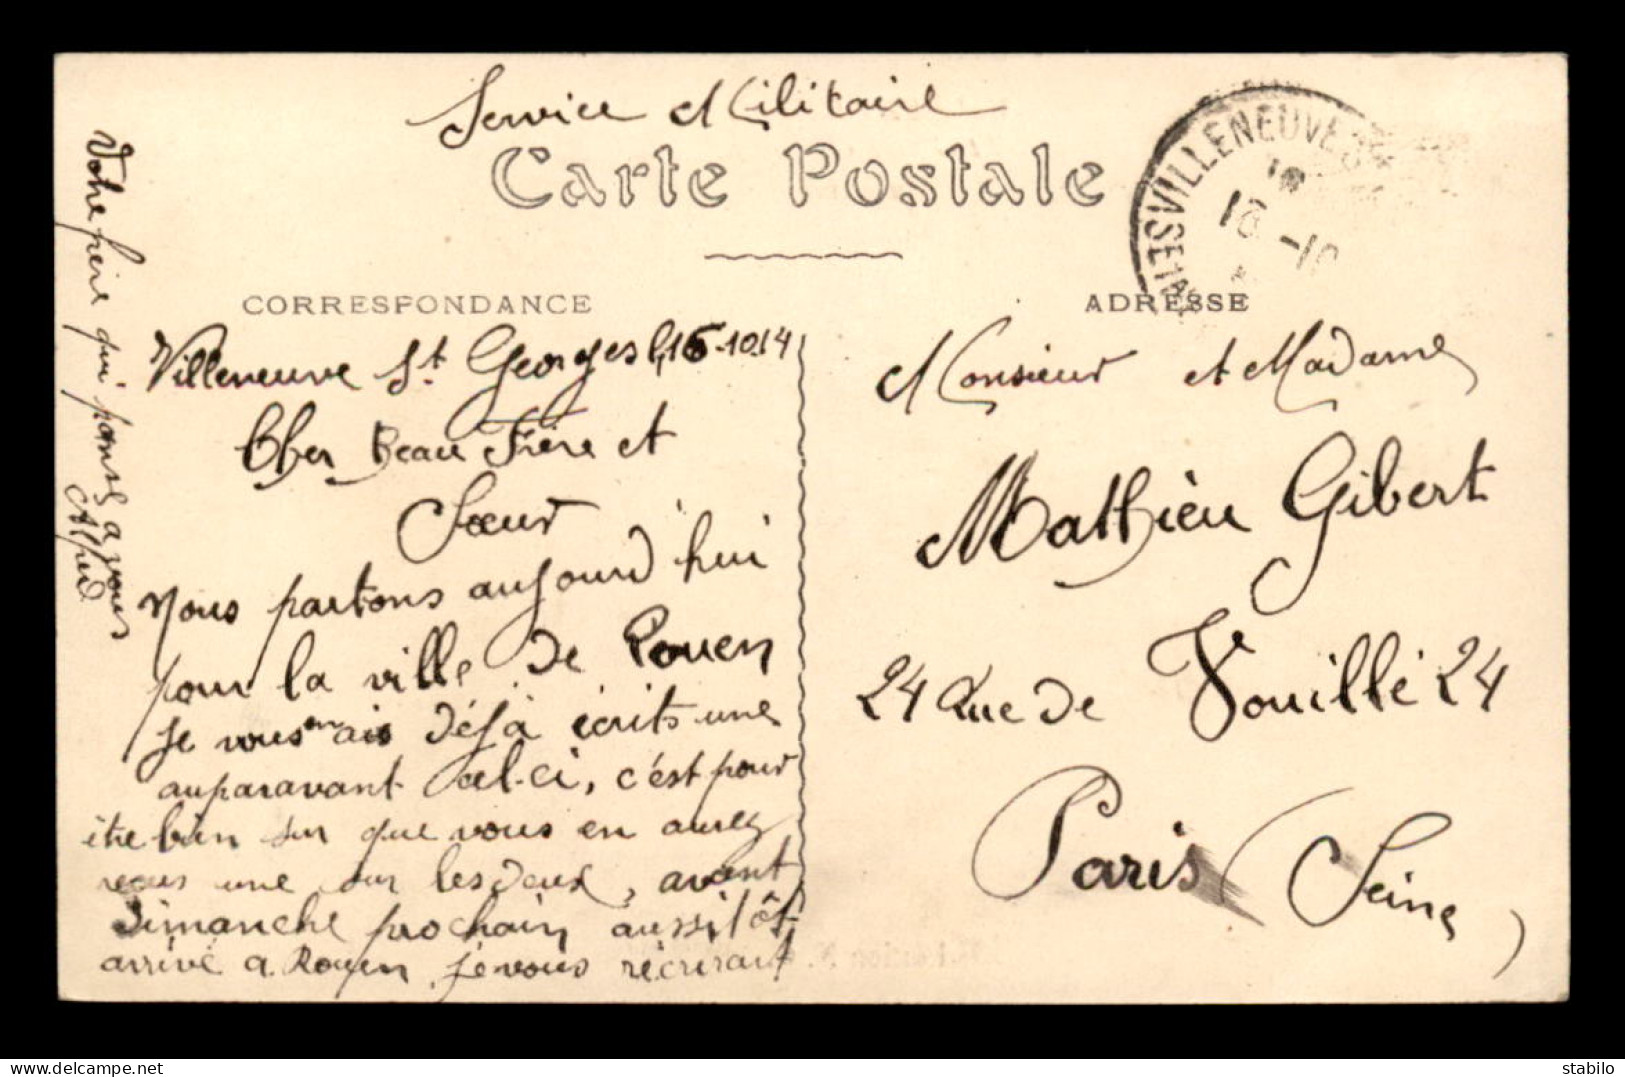 Service Militaire
Carte Postale
VILLENEUVE S
CORRESPONDANCE
ADRESSE
Villeneuve St Georges l 16-10.14
Cher Beau Frère et
Sœur
Nous partons aujourd'hui
pour la ville de Rouen
Je vous en ais déjà écrits une
auparavant cel-ci, c'est pour
être bien sur que vous en aurez
reçus une sur les deux, avant
Dimanche prochain aussitôt
arrivé a Rouen je vous récrirait
Votre frère qui pense a vous
Alfred
Monsieur et Madame
Mathieu Gibert
24 Rue de Vouillé 24
Paris (Seine)
stabilo